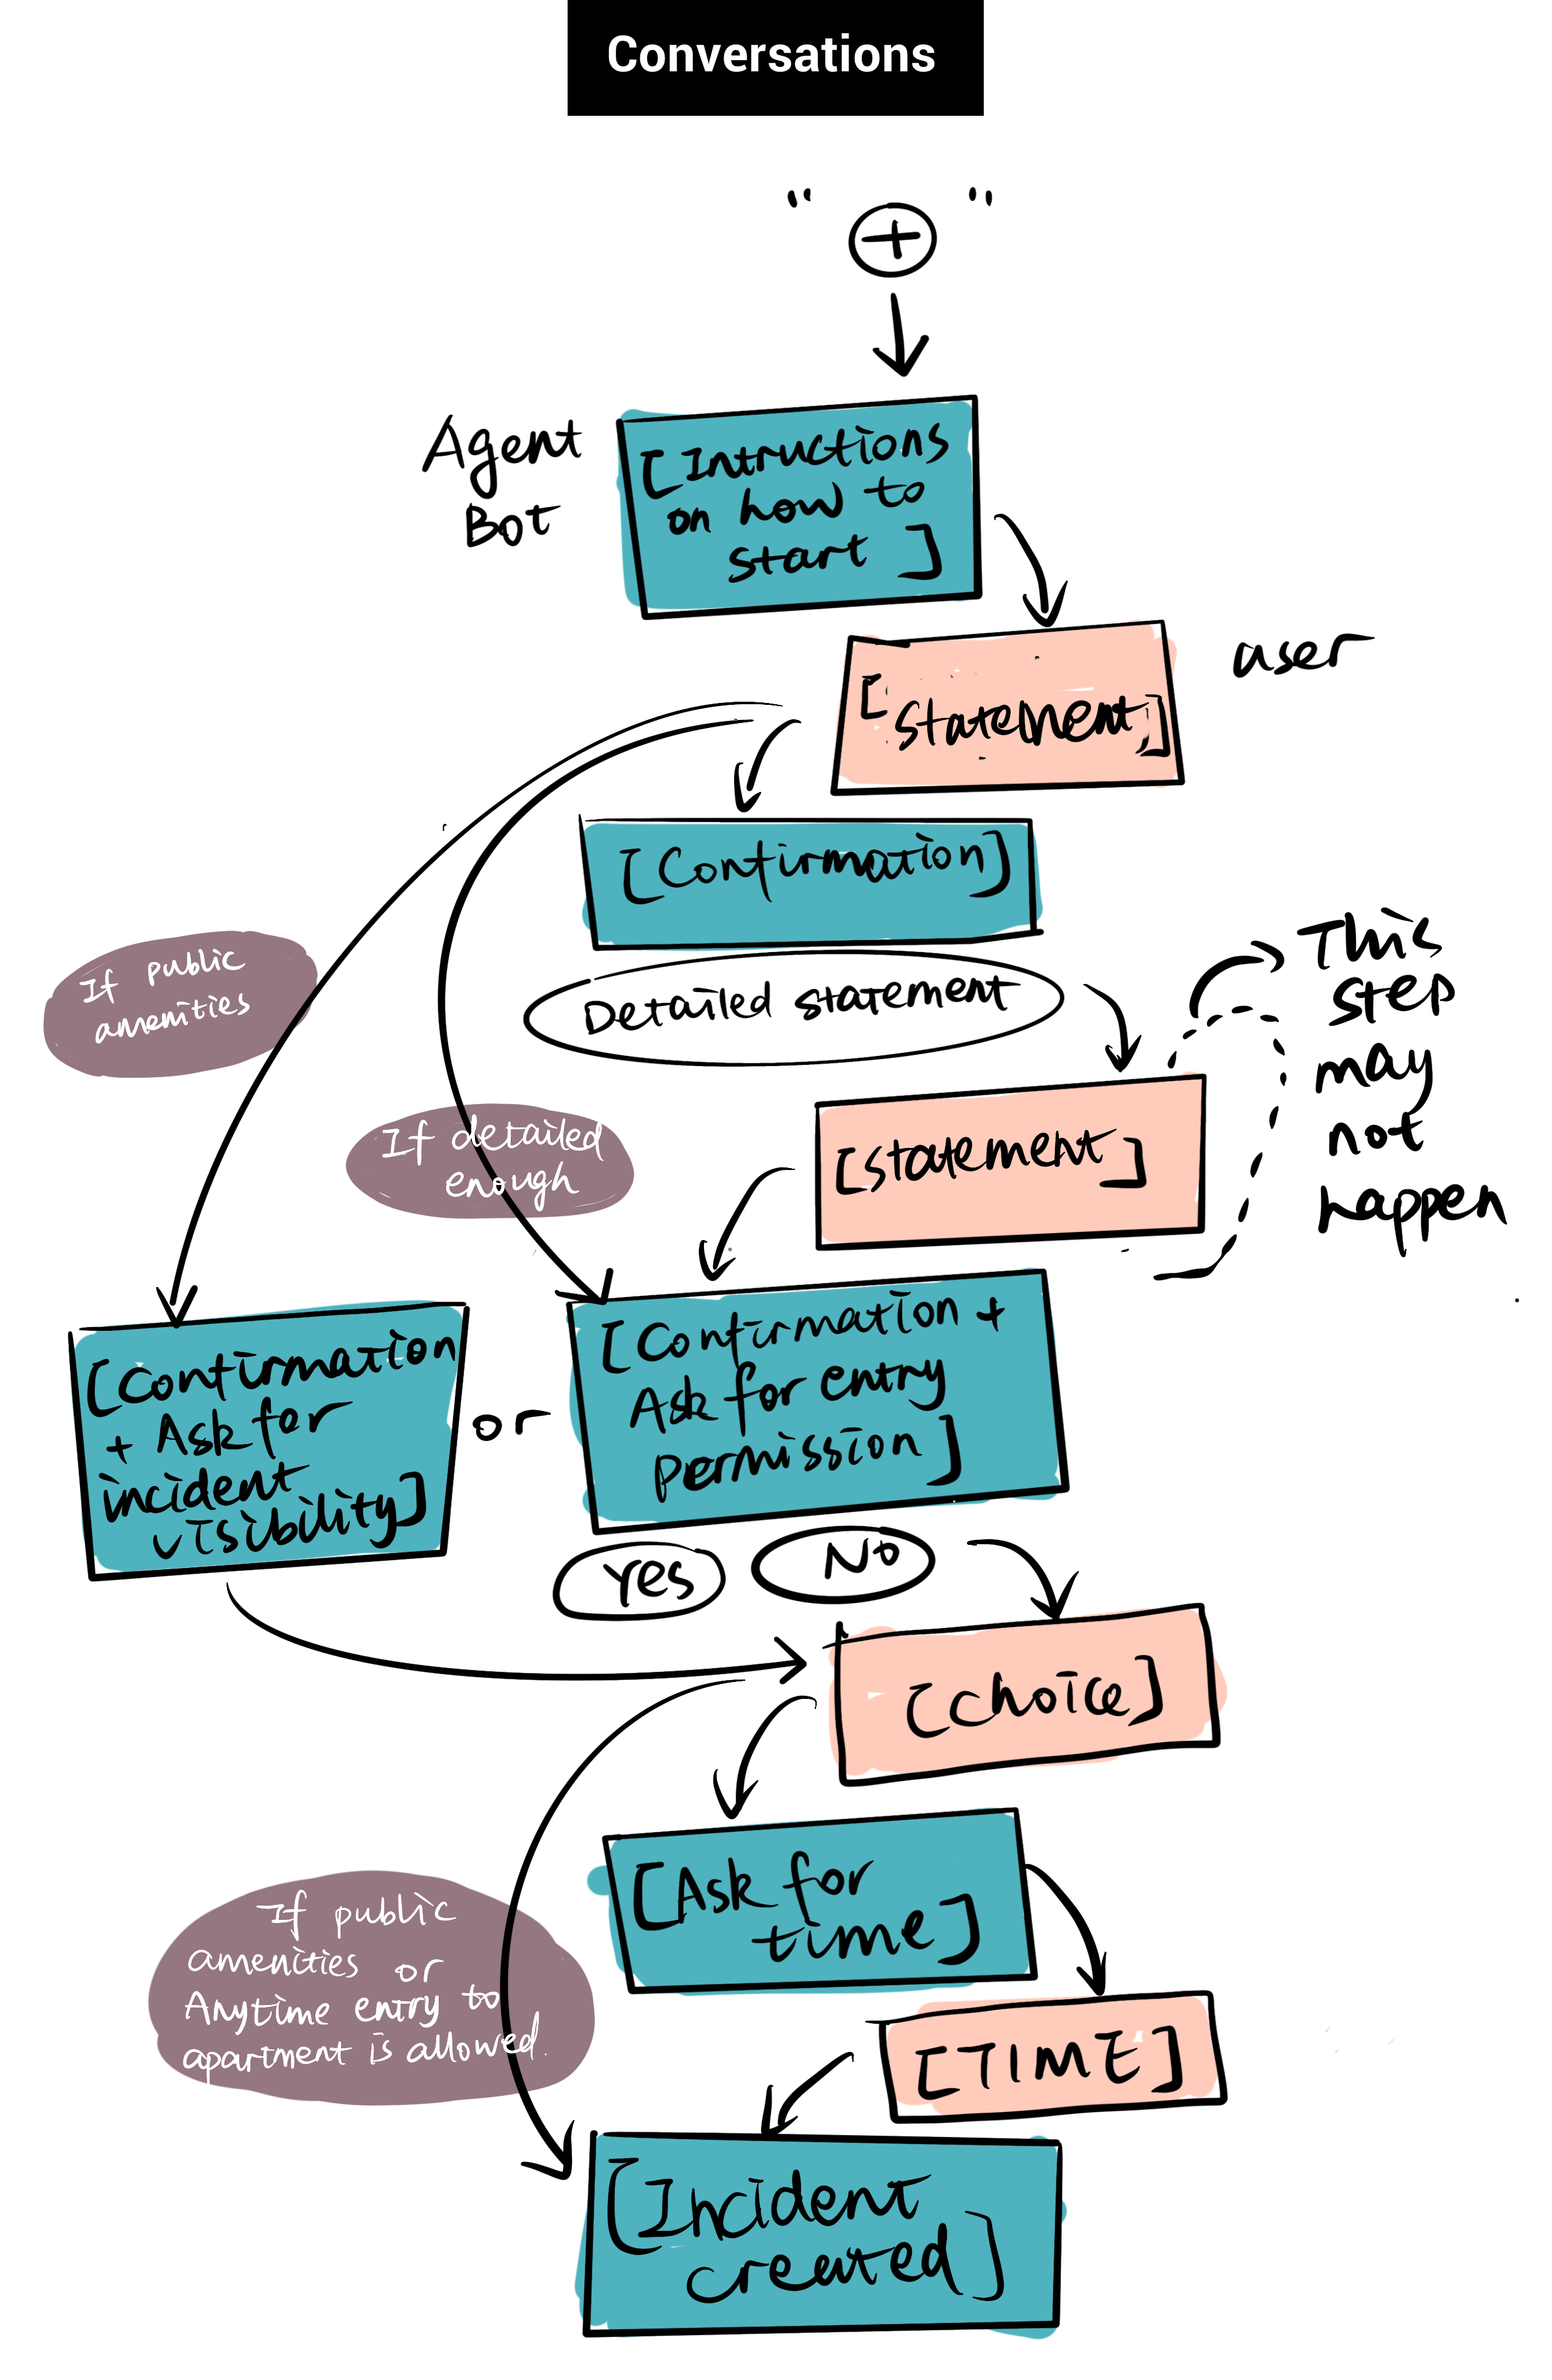 Conversations
" + "
Agent
Bot
[Intructions
on how to
start ]
user
[
statement]
[Confirmation]
Detailed statement
This
step
may
not
happen
If public
amenities
If detailed
enough
[statement]
[Confirmation
+ Ask for
incident
visibility]
or
[Confirmation +
Ask for entry
permission ]
Yes
No
[choice]
[Ask for
time]
If public
amenities or
Anytime entry to
apartment is allowed.
[TIME]
[Incident
created]